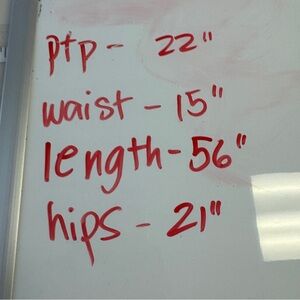 ptp - 22"
waist - 15"
length - 56"
hips - 21"